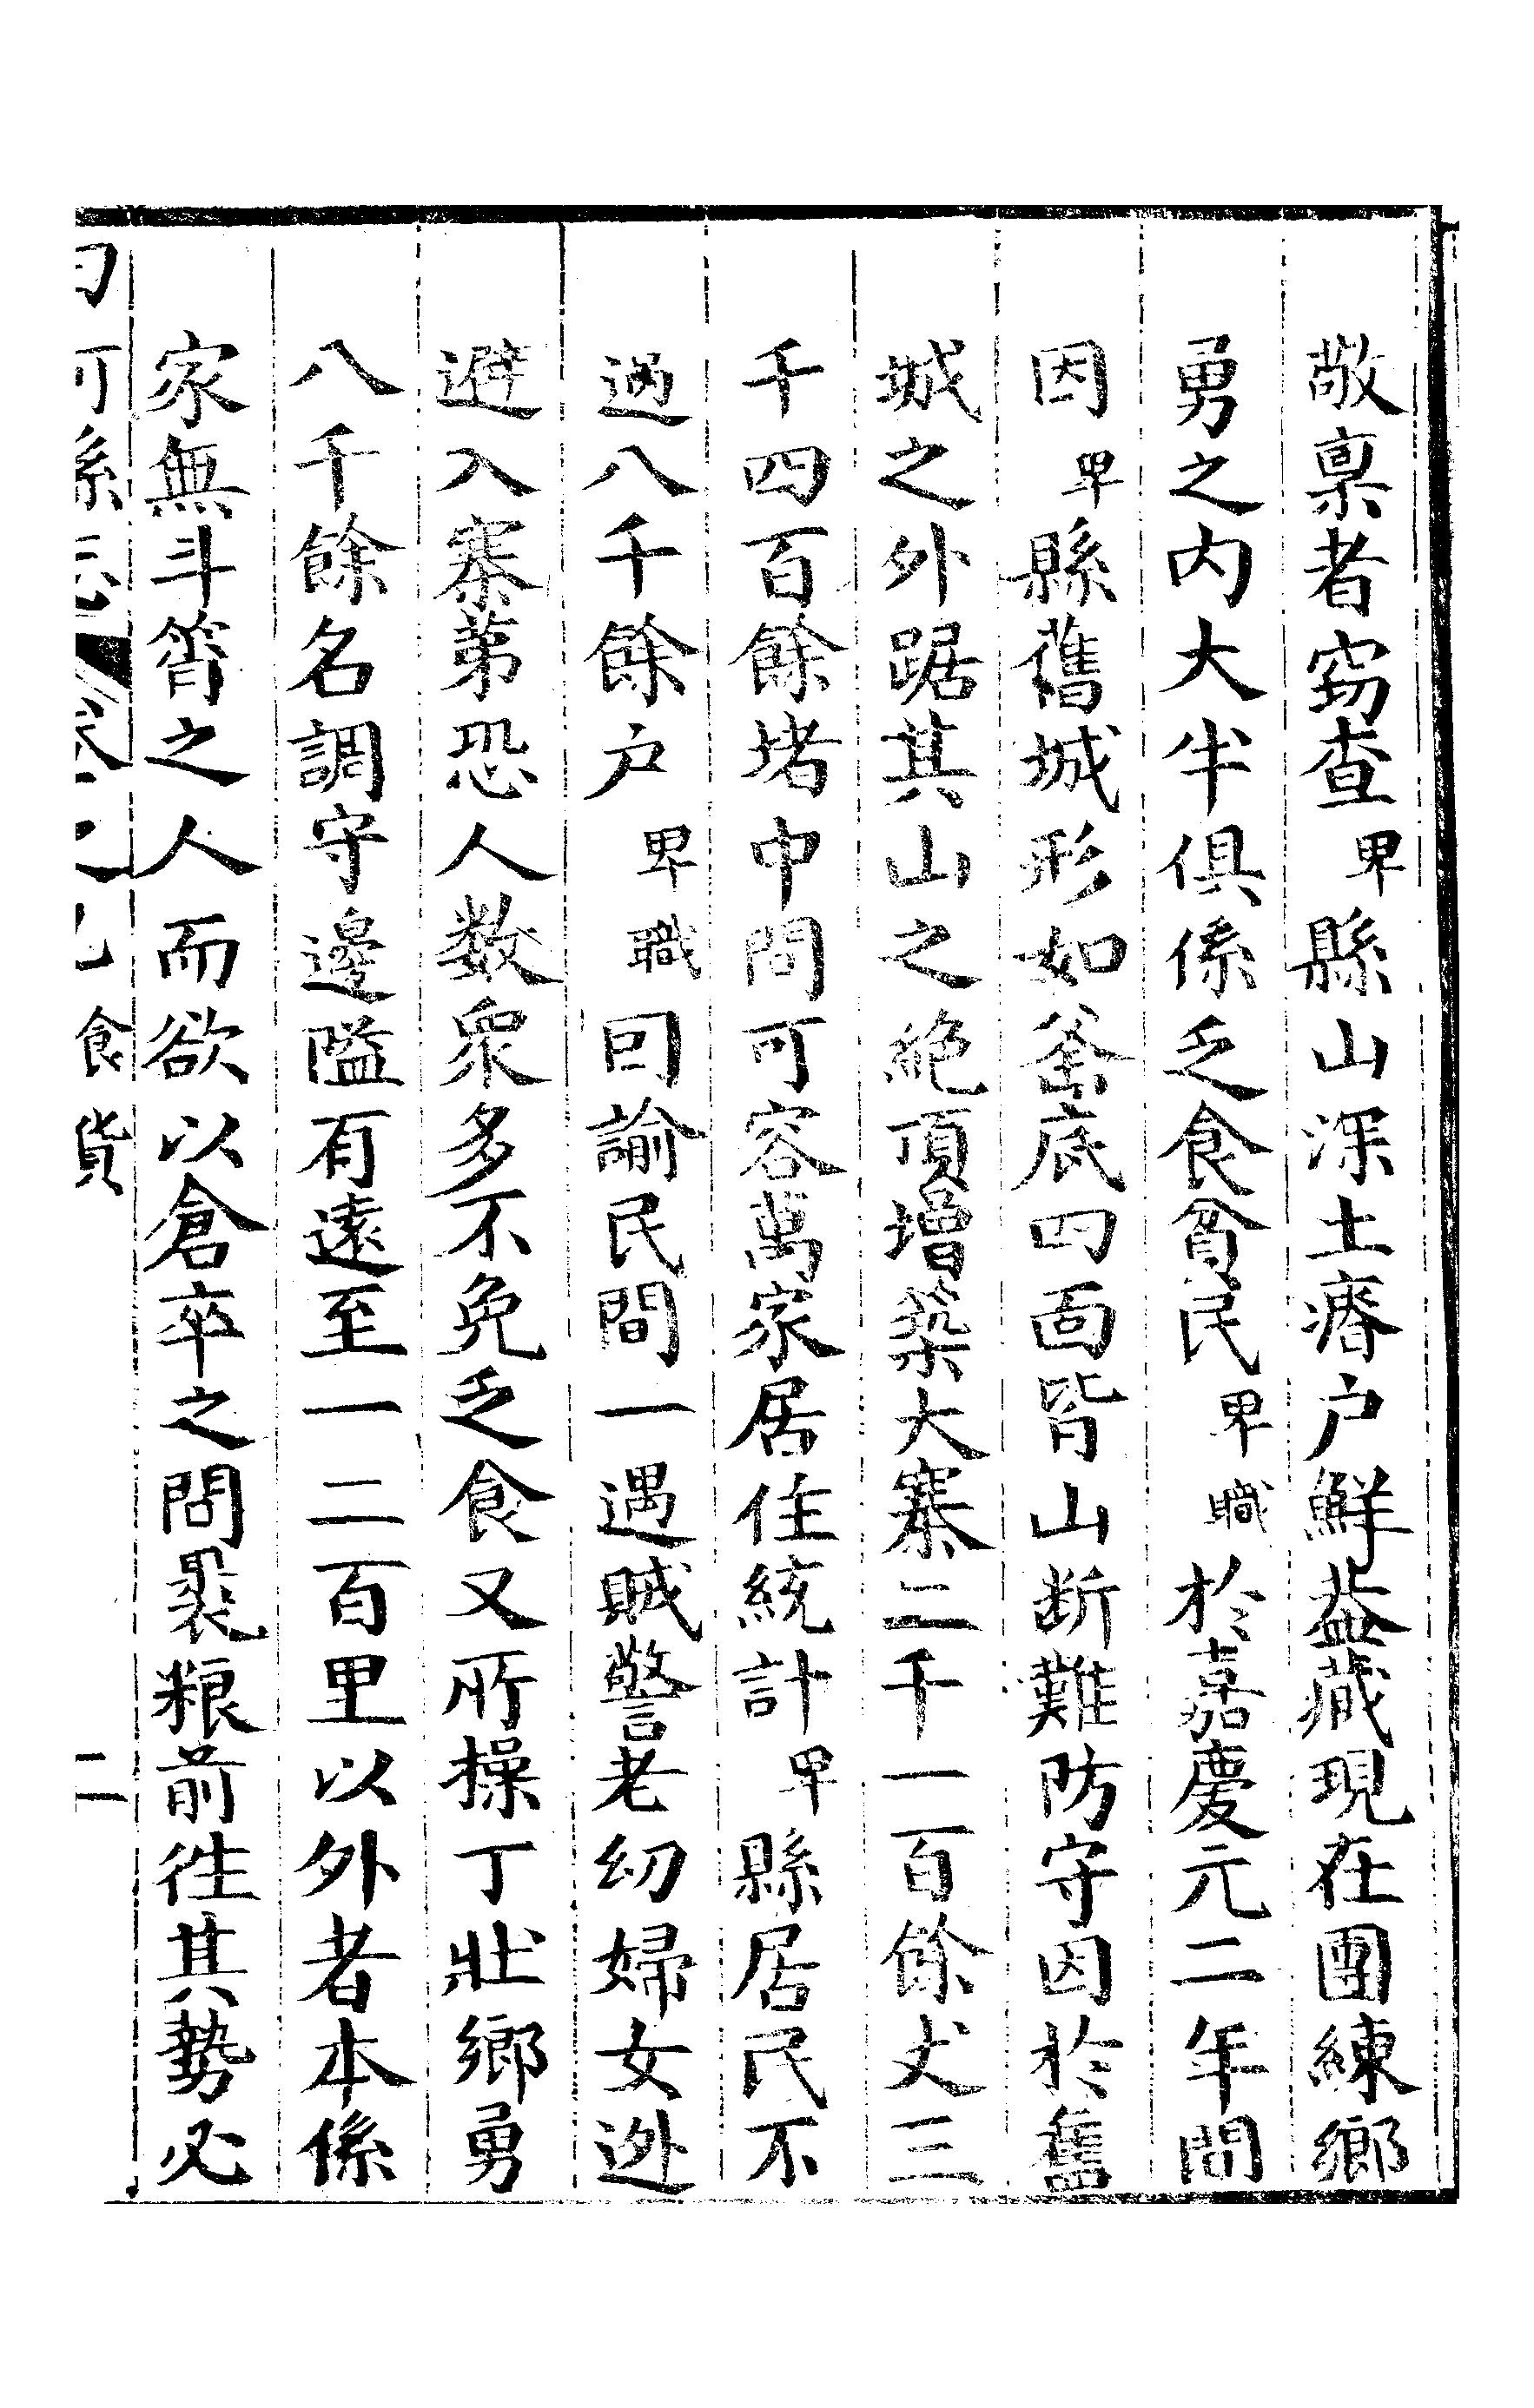 敬稟者窃查卑縣山深土瘠户鮮葢藏現在團練鄉
勇之内大半俱係乏食貧民卑職於嘉慶元二年間
因卑縣舊城形如釜底四面皆山斷難防守因於舊
城之外踞其山之絶頂增築大寨二千一百餘丈三
千四百餘堵中間可容萬家居住統計卑縣居民不
過八千餘户卑職囘諭民間一遇賊警老幼婦女迯
避入寨第恐人数衆多不免乏食又所操丁壯鄉勇
八千餘名調守邊隘有遠至一二百里以外者本係
家無斗筲之人而欲以倉卒之間裹粮前徃其勢必
食貨
二